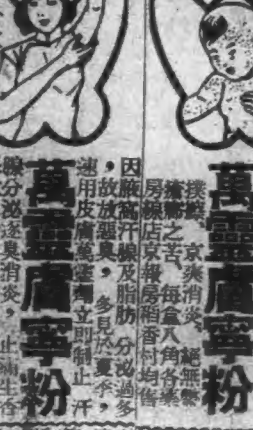 萬靈膚寧粉
撲 、京爽消炎、絕無
之苦、每盒八角各藥
房 店京報房稻香村均售
因腋窩汗線及脂肪、分泌過多
，故放惡臭，多見於夏季，
速用皮膚萬靈劑立即制止、汗
萬靈膚寧粉
腺分泌逐臭消炎，止 生